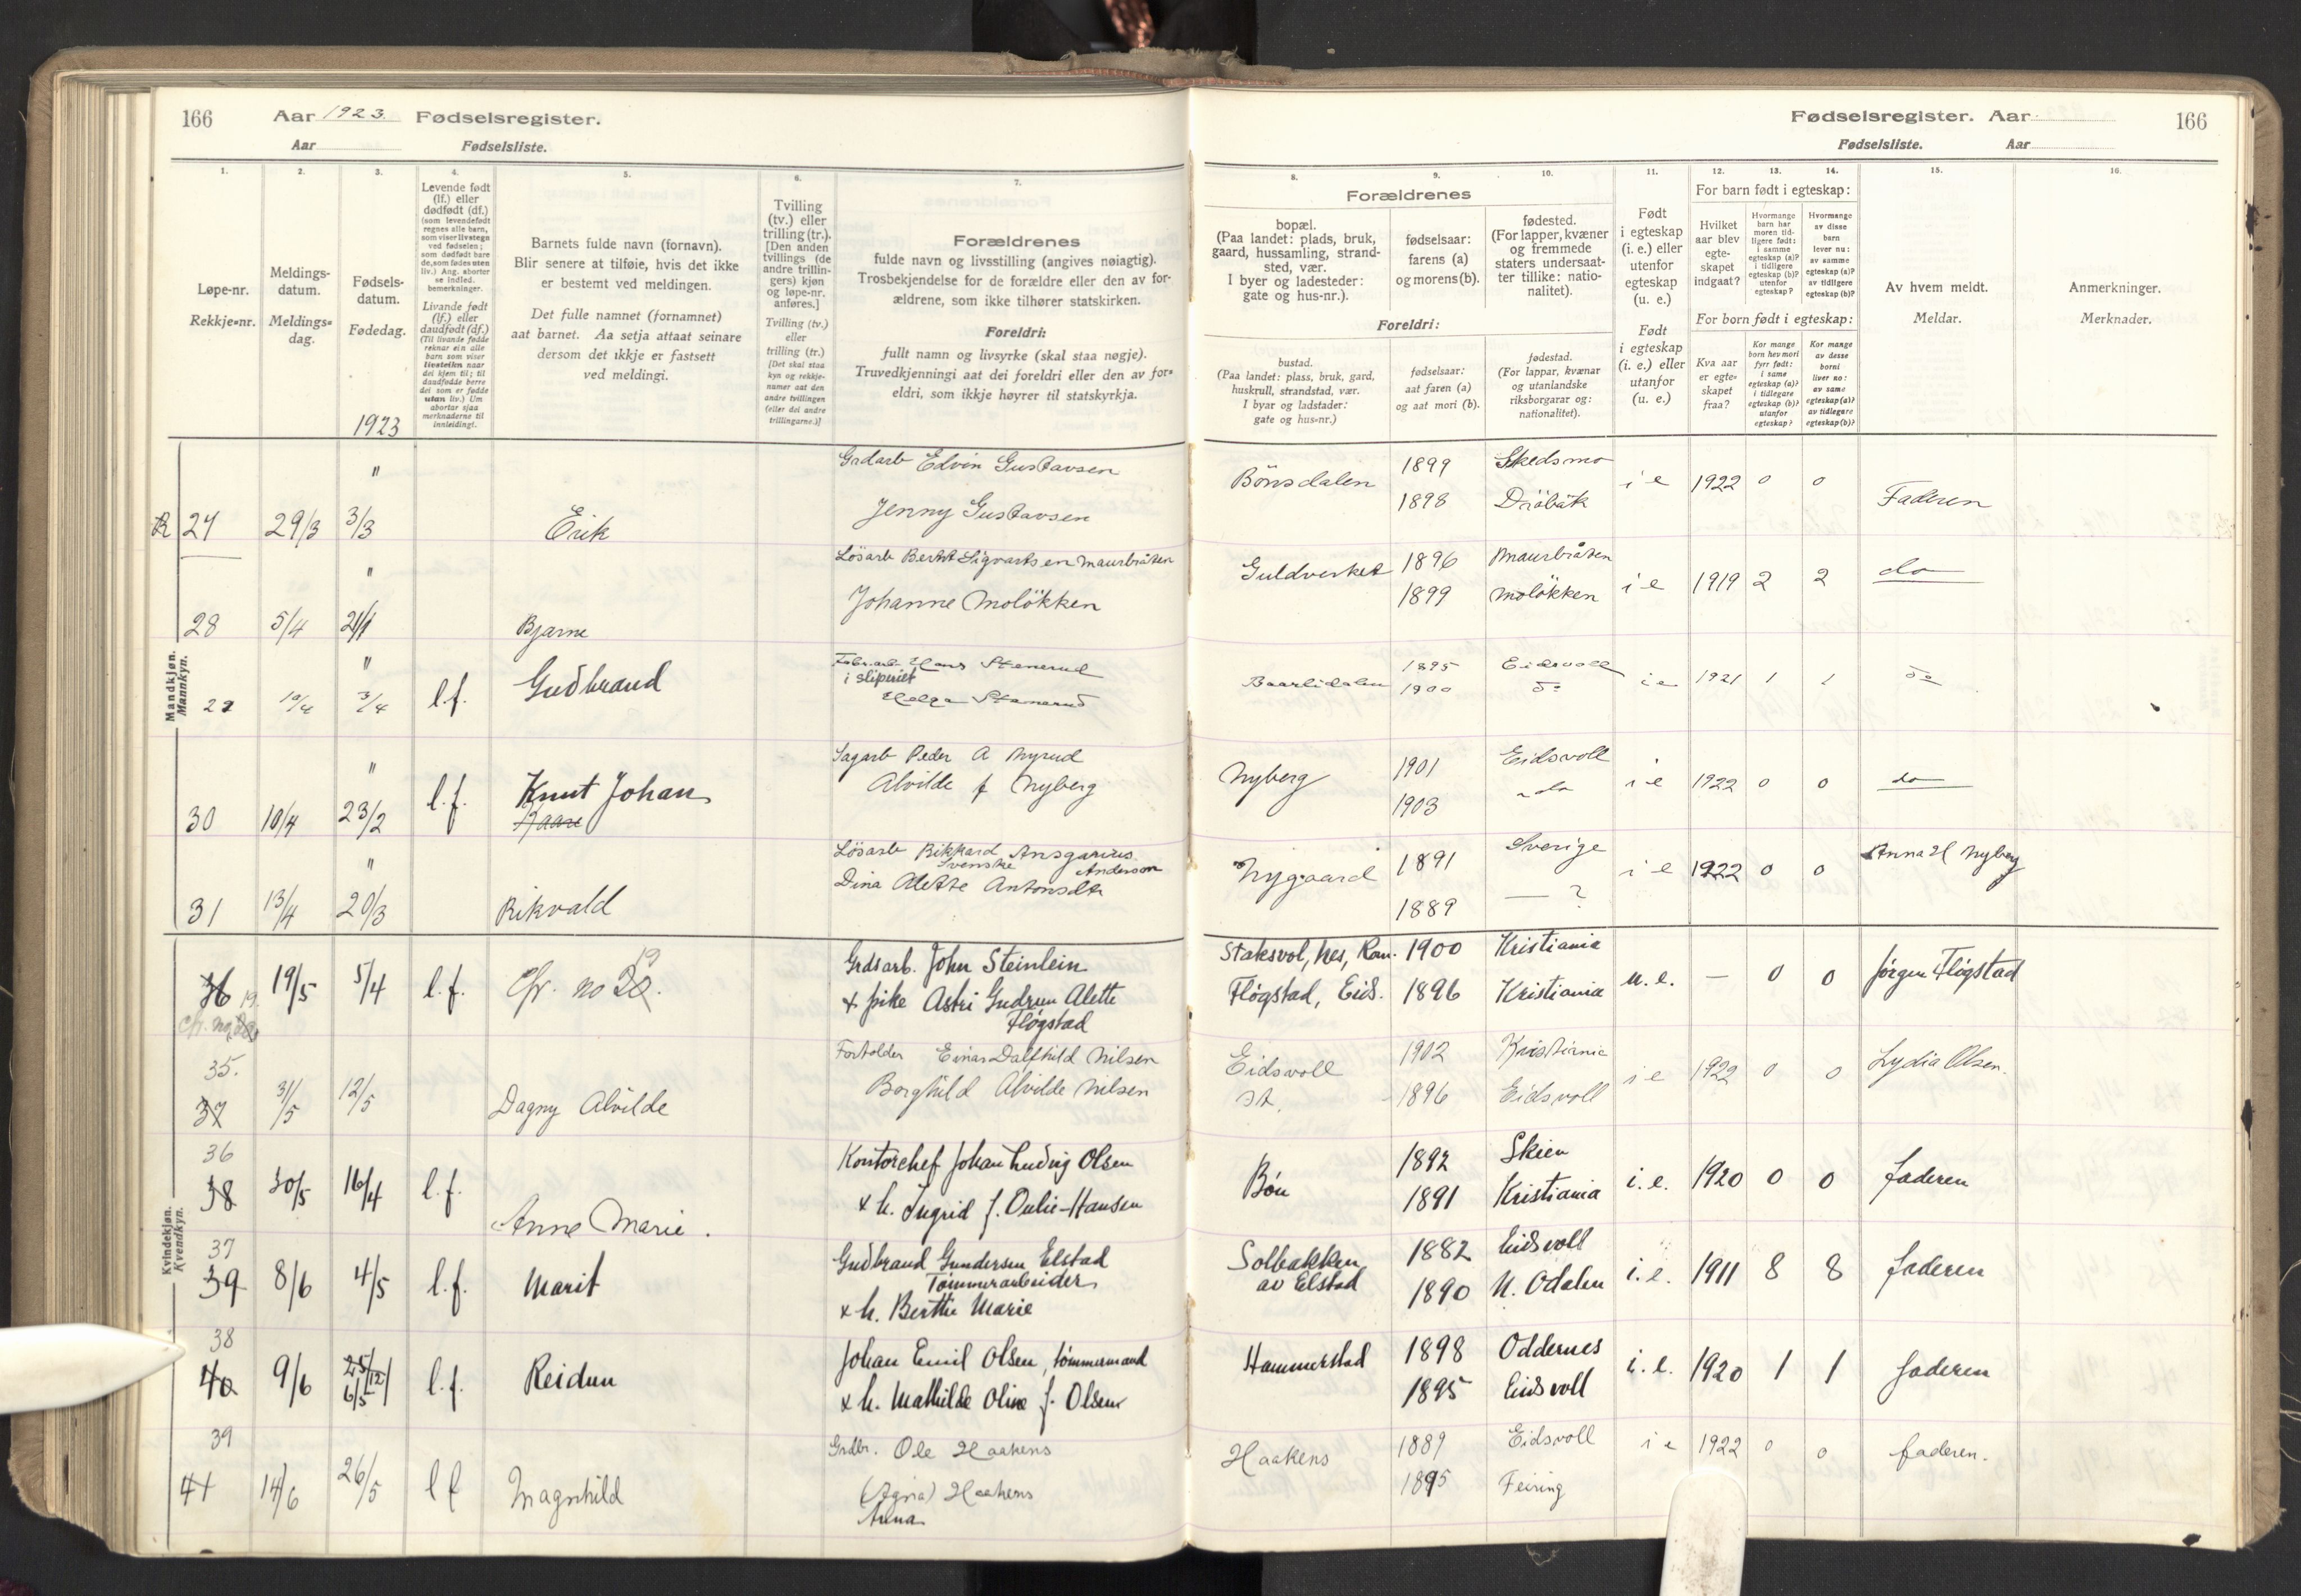 166 Aar 1923. Fødselsregister.
Aar Fødselsliste.
Fødselsregister. Aar 166
Fødselsliste. Aar
1. 2. 3. 4. 5. 6. 7.
8. 9. 10. 11. 12. 13. 14. 15. 16.
Løpe-nr.
Rekkje=nr.
Meldings-
datum.
Meldings=
dag.
Fødsels-
datum.
Fødedag.
1923
Levende født
(lf.) eller
dødfødt (df.)
(som levendefødt
regnes alle barn,
som viser livstegn
ved fødselen;
som dødfødt bare
de, som fødes uten
liv.) Ang. aborter
se indled.
bemerkninger.
Livande født
(lf.) eller
daudfødt (df.)
(Til livande fødde
reknar ein alle
barn som viser
livsteikn naar
dei kjem til; til
daudfødde berre
dei som er fødde
utan liv.) Um
abortar sjaa
merknaderne til
innleidingi.
Barnets fulde navn (fornavn).
Blir senere at tilføie, hvis det ikke
er bestemt ved meldingen.
Det fulle namnet (fornamnet)
aat barnet. Aa setja attaat seinare
dersom det ikkje er fastsett
ved meldingi.
Tvilling
(tv.) eller
trilling (tr.).
[Den anden
tvillings (de
andre trillin-
gers) kjøn
og løpe-nr.
anføres.]
Tvilling (tv.)
eller
trilling (tr.)
[Det skal staa
kyn og rekkje-
numer aat den
andre tvillingen
(eller dei andre
trillingarne.)]
Forældrenes
fulde navn og livsstilling (angives nøiagtig).
Trosbekjendelse for de forældre eller den av for-
ældrene, som ikke tilhører statskirken.
Foreldri:
fullt namn og livsyrke (skal staa nøgje).
Truvedkjenningi aat dei foreldri eller den av for=
eldri, som ikkje høyrer til statskyrkja.
Forældrenes
bopæl.
(Paa landet: plads, bruk,
gaard, hussamling, strand-
sted, vær.
I byer og ladesteder:
gate og hus-nr.).
fødselsaar:
farens (a)
og morens (b).
fødested.
(For lapper, kvæner
og fremmede
staters undersaat-
ter tillike: natio-
nalitet).
Foreldri:
bustad.
(Paa landet: plass, bruk, gard,
huskrull, strandstad, vær.
I byar og ladstader:
gate og hus=nr.)
fødselsaar:
aat faren (a)
og aat mori (b).
fødestad.
(For lappar, kvænar
og utanlandske
riksborgarar og:
nationalitet).
Født
i egteskap
(i. e.) eller
utenfor
egteskap
(u. e.)
Født
i egteskap
(i. e.) eller
utanfor
(u. e.)
For barn født i egteskap:
Hvilket
aar blev
egte-
skapet
indgaat?
Hvormange
barn har
moren tid-
ligere født:
i samme
egteskap (a)?
i tidligere
egteskap (b)?
utenfor
egteskap?
Hvormange
av disse
barn
lever nu:
av samme
egteskap (a)?
av tidligere
egteskap (b)?
For born født i egteskap:
Kva aar
er egte-
skapet
fraa?
Kor mange
born hev mori
fyrr født:
i same
egteskap (a)?
i tidlegare
egteskap (b)?
utanfor
egteskap?
Kor mange
av desse
borni
liver no:
av same
egteskap (a)?
av tidlegare
egteskap (b)?
Av hvem meldt.
Meldar.
Anmerkninger.
Merknader.
Mandkjøn.
Mannkyn.
"
R 27 29/3 3/3 Erik
Gadarb Edvin Gustavsen
Jenny Gustavsen
Bönsdalen 1899 Skedsmo i e 1922 0 0 Faderen
1898 Dröbak
"
28 5/4 21/1 Bjarne
Lösarb Bernt Sigvartsen Maurbråten
Johanne Molökken
Guldverket 1896 Maurbråten i e 1919 2 2 do
1899 Molökken
"
29 10/4 3/4 l.f. Gudbrand
Fabr.arb Hans Stenerud
i sliperiet
Helga Stenerud
Baarlidalen 1895 Eidsvoll i e 1921 1 1 do
1900 do
"
30 10/4 23/2 l.f. Knut Johan
Kaare
Sagarb Peder A Nyrud
Alvilde f Nyberg
Nyberg 1901 Eidsvoll i e 1922 0 0 do
1903 do
"
31 13/4 20/3 Rikvald
Lösarb Rikkard Ansgarius
Svenske Anderson
Dina Alette Antonsdtr
Nygaard 1891 Sverige i e 1922 0 0 Anna H Nyberg
1889 — ?
Kvindekjøn.
Kvendkyn.
36 19/5 5/4 l.f. Cfr. no 20. 19
cfr. no 20 19.
Grdsarb. John Steinlein
+ pike Astri Gudrun Alette
Fløgstad
Staksvol, Nes, Rom. 1900 Kristiania u. e. — 0 0 Jørgen Fløgstad
Fløgstad, Eids. 1896 Kristiania
35.
37 31/5 12/5 Dagny Alvilde
Forholder Einar Dalfhild Nilsen
Borghild Alvilde Nilsen
Eidsvoll 1902 Kristiania i e 1922 0 0 Lydia Olsen.
st. 1896 Eidsvoll
36
38 30/5 16/4 l.f. Anne Marie.
Kontorchef Johan Ludvig Olsen
+ h. Ingrid f. Oulie-Hansen
Bøn 1892 Skien i. e. 1920 0 0 faderen
1891 Kristiania
37
39 8/6 4/5 l.f. Marit
Gudbrand Gundersen Elstad
Tømmerarbeider
+ h. Berthe Marie
Solbakken 1882 Eidsvoll i. e. 1911 8 8 faderen
av Elstad 1890 N. Odalen
38
40 9/6 25/12 6/5 l.f. Reidun
Johan Emil Olsen, tømmermand
+ h. Mathilde Oline f. Olsen
Hammerstad 1898 Oddernes i. e. 1920 1 1 faderen
1895 Eidsvoll
39
41 14/6 26/5 l f Magnhild
Grdbr. Ole Haakens
(Agna) Haakens
Anna
Haakens 1889 Eidsvoll i e 1922 0 0 faderen.
1895 Feiring